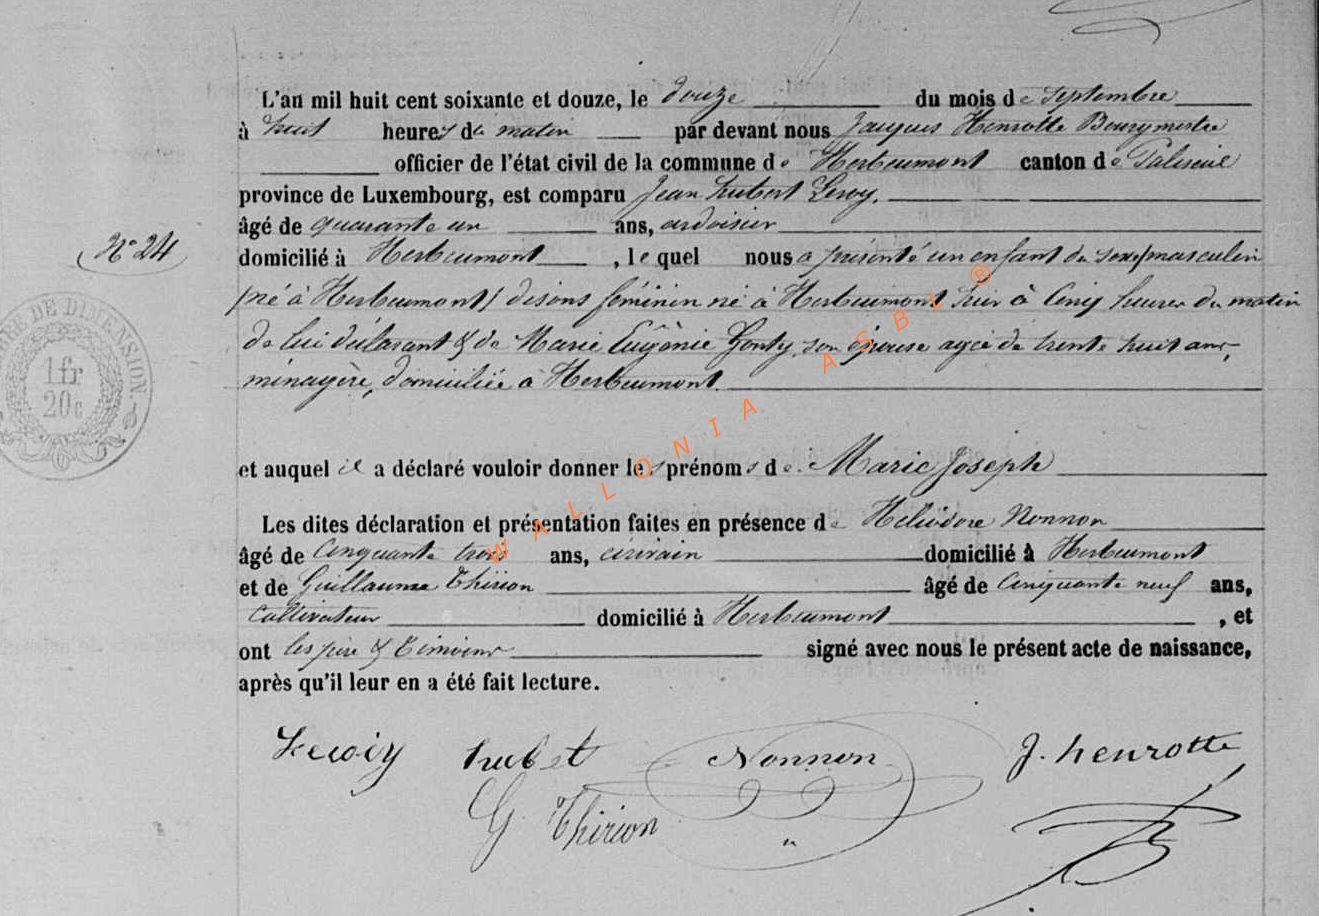 L'an mil huit cent soixante et douze, le douze du mois de Septembre
à huit heures du matin par devant nous Jacques Henrotte Bourgmestre
officier de l'état civil de la commune de Herbeumont canton de Paliseul
province de Luxembourg, est comparu Jean hubert Leroy,
âgé de quarante un ans, ardoisier
N° 24
domicilié à Herbeumont, lequel nous a présenté un enfant du sexe (masculin
né à Herbeumont) disons féminin né à Herbeumont hier à Cinq heures du matin
de lui déclarant & de Marie Eugénie son épouse agée de trente huit ans,
ménagère, domiciliée à Herbeumont.
TIMBRE DE DIMENSION.
1fr
20c
et auquel il a déclaré vouloir donner les prénoms de Marie Joseph
Les dites déclaration et présentation faites en présence de Héliodore Nonnon
âgé de Cinquante trois ans, écrivain domicilié à Herbeumont
et de Guillaume Thirion âgé de Cinquante neuf ans,
Cultivateur domicilié à Herbeumont, et
ont les père & témoins signé avec nous le présent acte de naissance,
après qu'il leur en a été fait lecture.
Leroiy hubet Nonnon J. henrotte
G. Thirion
WALLONIA ASBL ®